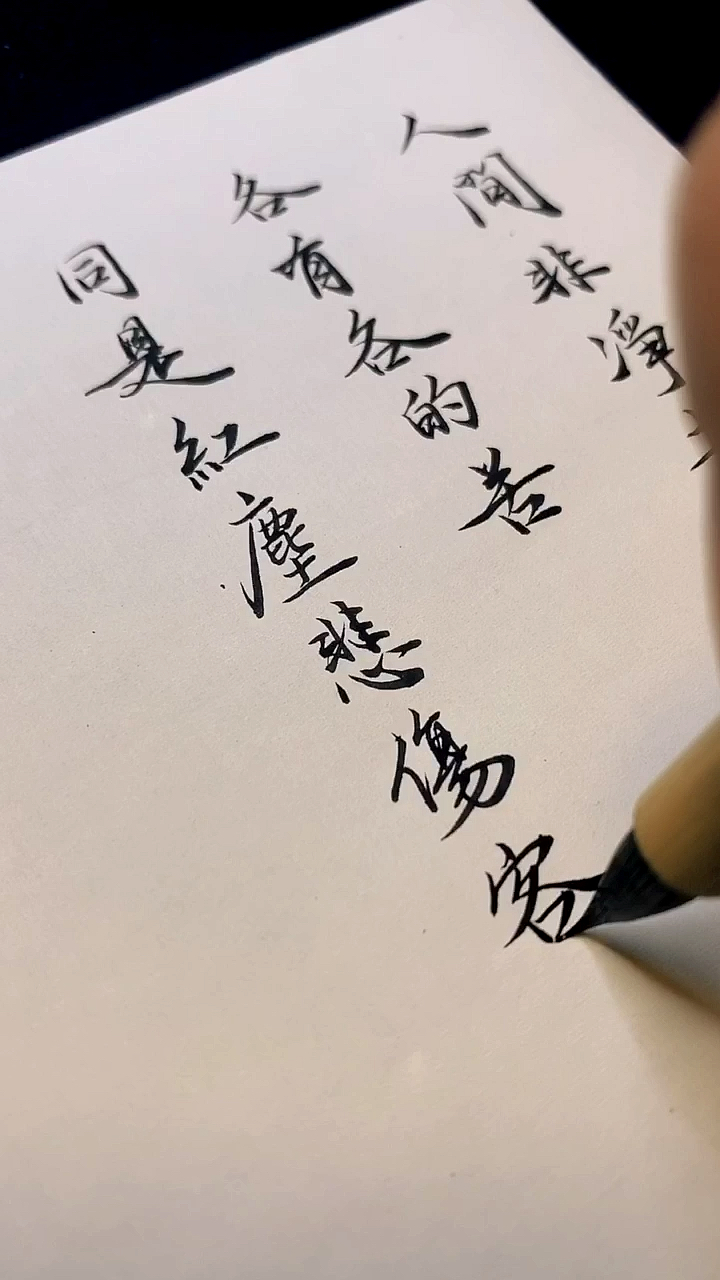 人間非淨
各有各的苦
同是紅塵悲傷客